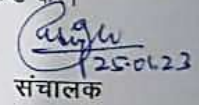 25.01.23
संचालक